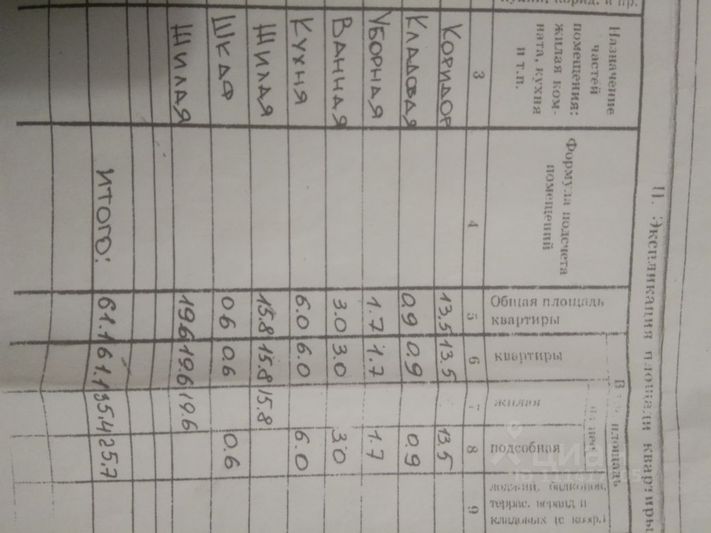 II. Экспликация площади квартиры
Назначение частей помещения: жилая комната, кухня и т.п.
Формула подсчета помещений
Общая площадь квартиры
площадь
квартиры
жилая
подсобная
лоджий, балконов, террас, веранд и кладовых (с коэф.)
3 4 5 6 7 8 9
КОРИДОР 13.5 13.5 13.5
КЛАДОВАЯ 0.9 0.9 0.9
УБОРНАЯ 1.7 1.7 1.7
ВАННАЯ 3.0 3.0 3.0
КУХНЯ 6.0 6.0 6.0
ЖИЛАЯ 15.8 15.8 15.8
ШКАФ 0.6 0.6 0.6
ЖИЛАЯ 19.6 19.6 19.6
ИТОГО: 61.1 61.1 35.4 25.7